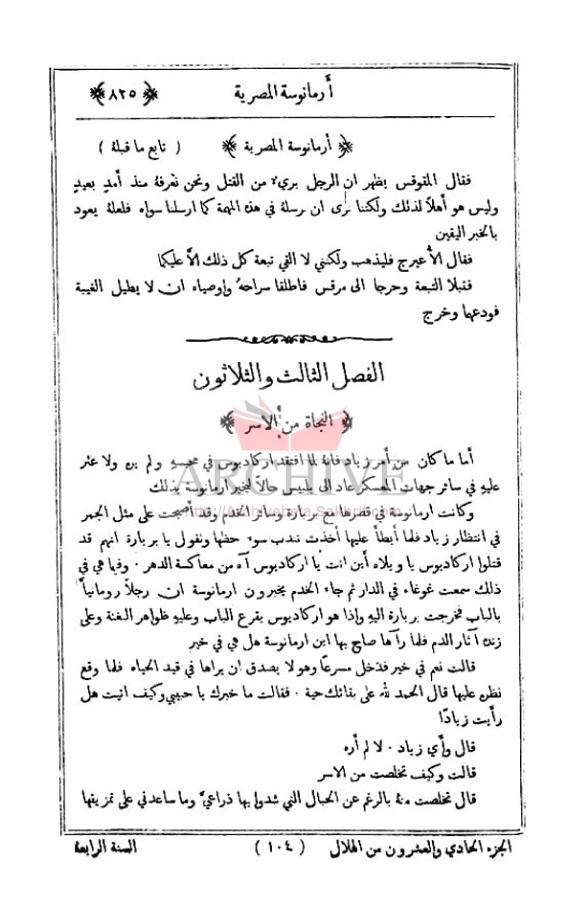 أرمانوسة المصرية ﴿ ٨٢٥ ﴾
﴿ أرمانوسة المصرية ﴾ ( تابع ما قبلهُ )
فقال المقوقس يظهر ان الرجل بريء من القتل ونحن نعرفهُ منذ أمدٍ بعيدٍ
وليس هو أهلاً لذلك ولكننا نرى ان نرسلهُ في هذه المهمة كما ارسلنا سواه فلعلهُ يعود
بالخبر اليقين
فقال الأعيرج فليذهب ولكنني لا القي تبعة كل ذلك الاَّ عليكما
فقبلا التبعة وخرجا الى مرقس فاطلقا سراحهُ واوصياه ان لا يطيل الغيبة
فودعهما وخرج
الفصل الثالث والثلاثون
﴿ النجاة من الاسر ﴾
أما ما كان من أمر زياد فانهُ لما افتقد اركاديوس في محبسهِ ولم يره ولا عثر
عليهِ في سائر جهات المعسكر عاد الى بلبيس حالاً ليخبر ارمانوسة بذلك
وكانت ارمانوسة في قصرها مع بربارة وسائر الخدم وقد أصبحت على مثل الجمر
في انتظار زياد فلما أبطأ عليها أخذت تندب سوء حظها وتقول يا بربارة انهم قد
قتلوا اركاديوس يا ويلاه أين انت يا اركاديوس آه من معاكسة الدهر ٠ وفيما هي في
ذلك سمعت غوغاء في الدار ثم جاء الخدم يخبرون ارمانوسة ان رجلاً رومانياً
بالباب فخرجت بربارة اليهِ واذا هو اركاديوس يقرع الباب وعليهِ ظواهر البغتة وعلى
زنده آثار الدم فلما رآها صاح بها اين ارمانوسة هل هي في خير
قالت نعم في خير فدخل مسرعاً وهو لا يصدق ان يراها في قيد الحياء فلما وقع
نظره عليها قال الحمد لله على بقائك حية ٠ فقالت ما خبرك يا حبيبي وكيف اتيت هل
رأيت زياداً
قال وأي زياد ٠ لا لم أره
قالت وكيف تخلصت من الاسر
قال تخلصت منهُ بالرغم عن الحبال التي شدوا بها ذراعيَّ وما ساعدني على تمزيقها
الجزء الحادي والعشرون من الهلال ( ١٠٤ ) السنة الرابعة
ARCHIVE